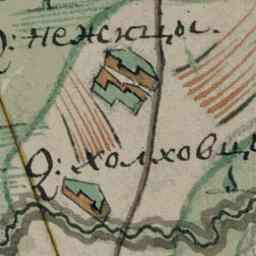 Д: нежицы.
Д: холховцы